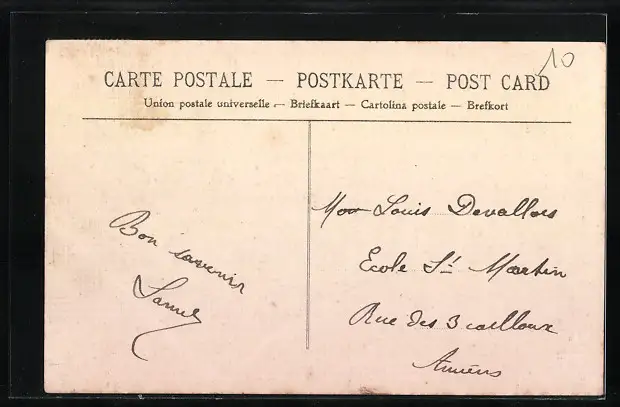 10
CARTE POSTALE — POSTKARTE — POST CARD
Union postale universelle — Briefkaart — Cartolina postale — Brefkort
Bon savenir
Mon Louis Devallois
Ecole St Martin
Rue des 3 cailloux
Amiens